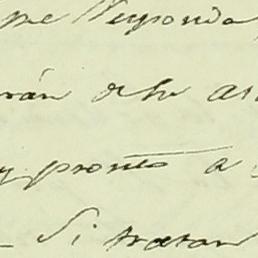 que Responda
rán dho as
y pronto a
Si tratan